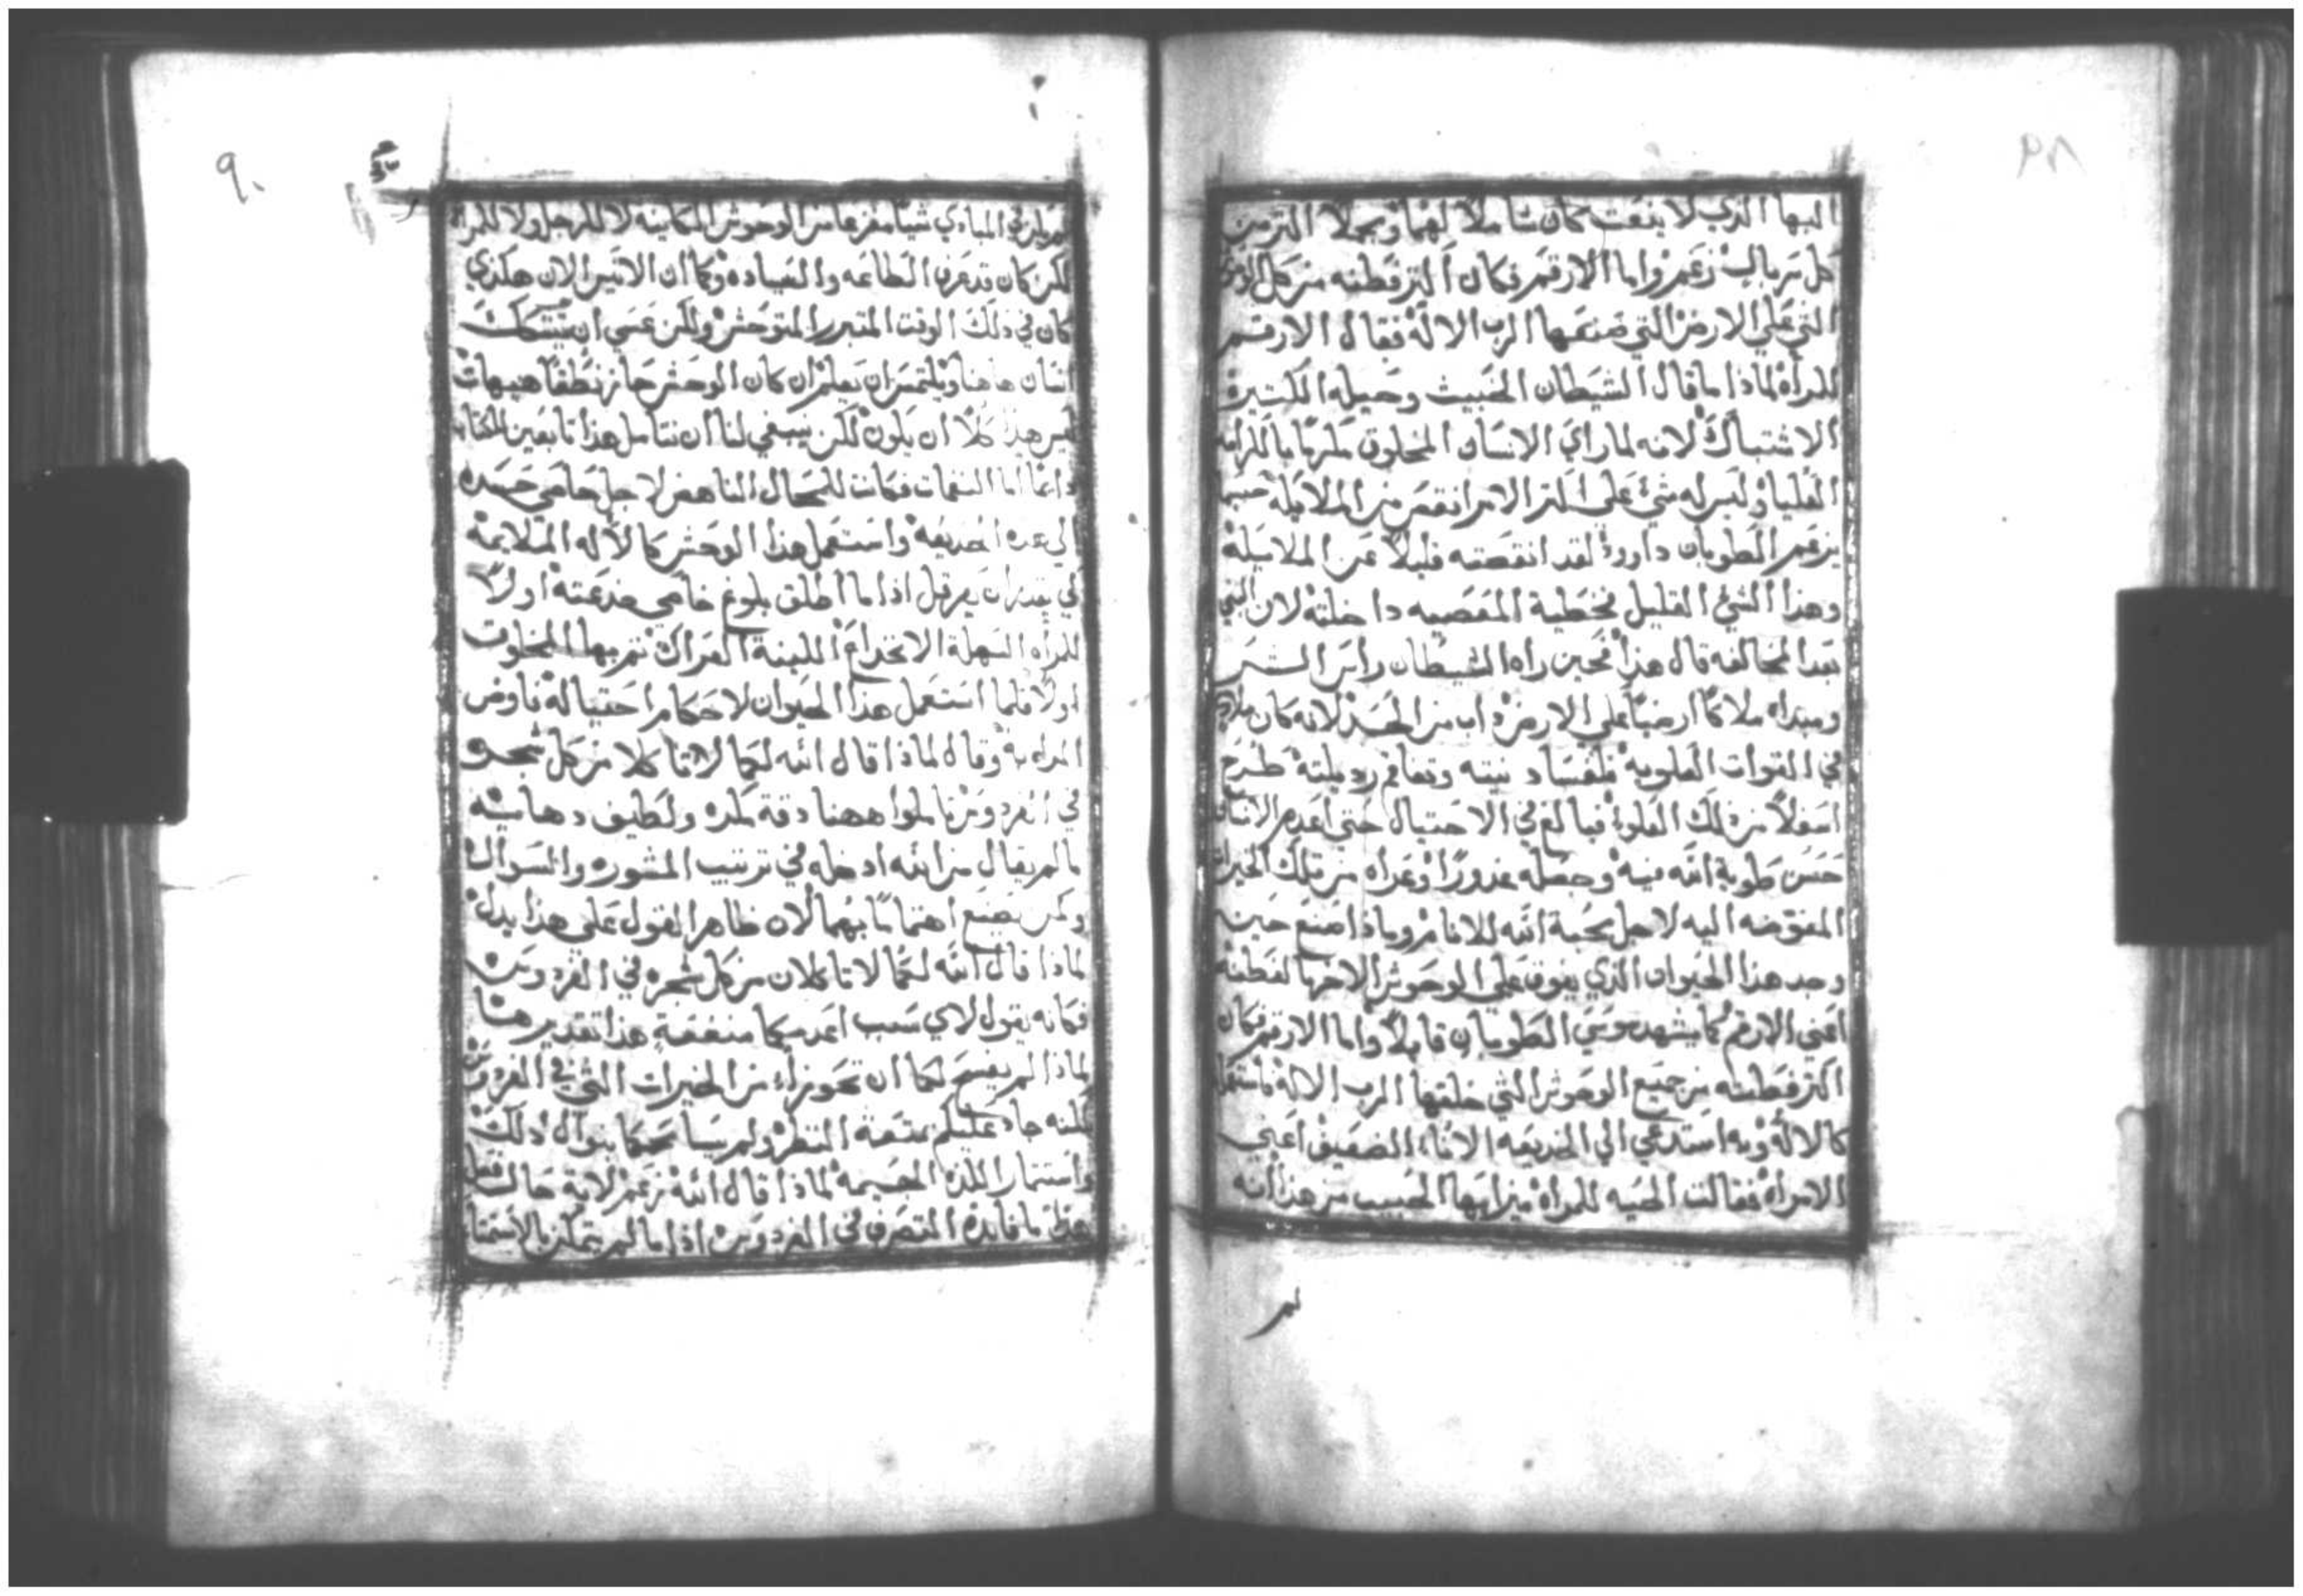 البها الذي لا ينعت كان شاملاً لهما ومجملاً اكثر من
كل سربال زعم واما الارقم فكان اكثر فطنه من كل الوحوش
التي علي الارض التي صنعها الرب الاله فقال الارقم
للمرأه لماذا ما قال الشيطان الخبيث وحيله الكتيرة
الاشتباك لانه لما راي الانسان المخلوق مكرمًا بالكرامه
العليا وليس له شي علي اكثر الامر انقص من الملايكه حسبما
يزعم الطوبان داوود لقد انقصته قليلاً عن الملايكة
وهذا الشي القليل فخطية المعصيه داخلته لان النبي
بعد المخالفه قال هذا فحين راه الشيطان راس الشر
ومبداه ملاكًا ارضيًا علي الارض داب من الحسد لانه كان
في القوات العلوية فلفساد نيته وتفاقم رديلته طرح
اسفلاً من ذلك العلو فبالغ في الاحتيال حتي اعدم الانسان
حسن طوية الله فيه وجعله غدورًا وعراه من تلك الخيرات
المفوضه اليه لاجل محبة الله للانام وماذا صنع حين
وجد هذا الحيوان الذي يفوق علي الوحوش الاخر بالفطنه
اعني الارقم كما يشهد موسي الطوبان قايلاً واما الارقم فكان
اكثر فطنه من جميع الوحوش التي خلقها الرب الاله فاستعمله
كالالة وبه استدعي الي الخديعه الانا الضعيف اعني
الامراه فقالت الحيه للمراه ميز ايها الحبيب من هذا انه
لم
٩٠
لم يكن في المبادي شيًا مفزعًا من الوحوش الكاينه لا للرجل ولا للمراه
لكن كان قد عرف الطاعه والعباده وكما ان الانيس الان هكذي
كان في ذلك الوقت المتبرر المتوحش ولكن عسي ان يتشكك
انسان هاهنا ويلتمس ان يعلم ان كان الوحش حاز نطقًا هيهات
ليس هذا كلا ان يكون لكن ينبغي لنا ان نتامل هذا تابعين الكتاب
دايمًا اما النغمات فكانت للمحال الناهض لاجل حسده
الي هذه الخديعه واستعمل هذا الوحش كالاله الملايمة
لكي يقدر ان يعرقل اذا ما اطلق بلوغ خدعته اولاً
للمرأه السهلة الانخداع اللينة العراك ثم بها المخلوق
اولاً فلما استعمل هذا الحيوان لاحكام احتياله فاوض
المراه به وقال لماذا قال الله لكما لا تاكلا من كل شجره
في الفردوس تاملوا ههنا دقة مكره ولطيف دهايه
ما لم يقال من الله ادخله في ترتيب المشوره والسوال
وكمن يصنع اهتمامًا بهما لان ظاهر القول علي هذا يدل
لماذا قال الله لكما لا تاكلان من كل شجره في الفردوس
فكانه يقول لاي سبب اعدمكما منفعة هذا تقديرها
لماذا لم يفسح لكما ان تحوزا من الخيرات التي في الفردوس
لكنه جاد عليكم بمتعة النظر ولم يسامحكما بنوال ذلك
واستثمار اللذه الجسيمة لماذا قال الله زعم لاية حال فعل
هذا ما فايدة التصرف في الفردوس اذا ما لم يتمكن بالاستمتاع